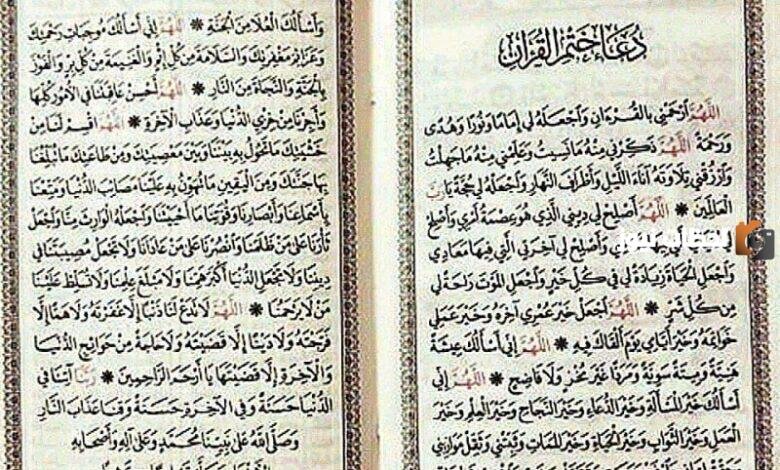 دُعَاءُ خَتْمِ الْقُرْآنِ
اللَّهُمَّ ارْحَمْنِي بِالْقُرْءَانِ وَاجْعَلْهُ لِي إِمَامًا وَنُورًا وَهُدًى
وَرَحْمَةً اللَّهُمَّ ذَكِّرْنِي مِنْهُ مَا نَسِيتُ وَعَلِّمْنِي مِنْهُ مَا جَهِلْتُ
وَارْزُقْنِي تِلَاوَتَهُ آنَاءَ اللَّيْلِ وَأَطْرَافَ النَّهَارِ وَاجْعَلْهُ لِي حُجَّةً يَا رَبَّ
الْعَالَمِينَ * اللَّهُمَّ أَصْلِحْ لِي دِينِي الَّذِي هُوَ عِصْمَةُ أَمْرِي وَأَصْلِحْ
وَأَصْلِحْ لِي آخِرَتِي الَّتِي فِيهَا مَعَادِي
وَاجْعَلِ الْحَيَاةَ زِيَادَةً لِي فِي كُلِّ خَيْرٍ وَاجْعَلِ الْمَوْتَ رَاحَةً لِي
مِنْ كُلِّ شَرٍّ * اللَّهُمَّ اجْعَلْ خَيْرَ عُمْرِي آخِرَهُ وَخَيْرَ عَمَلِي
خَوَاتِمَهُ وَخَيْرَ أَيَّامِي يَوْمَ أَلْقَاكَ فِيهِ * اللَّهُمَّ إِنِّي أَسْأَلُكَ عِيشَةً
هَنِيَّةً وَمِيتَةً سَوِيَّةً وَمَرَدًّا غَيْرَ مُخْزٍ وَلَا فَاضِحٍ * اللَّهُمَّ إِنِّي
أَسْأَلُكَ خَيْرَ الْمَسْأَلَةِ وَخَيْرَ الدُّعَاءِ وَخَيْرَ النَّجَاحِ وَخَيْرَ الْعِلْمِ وَخَيْرَ
الْعَمَلِ وَخَيْرَ الثَّوَابِ وَخَيْرَ الْحَيَاةِ وَخَيْرَ الْمَمَاتِ وَثَبِّتْنِي وَثَقِّلْ مَوَازِينِي
وَأَسْأَلُكَ الْعُلَا مِنَ الْجَنَّةِ * اللَّهُمَّ إِنِّي أَسْأَلُكَ مُوجِبَاتِ رَحْمَتِكَ
وَعَزَائِمَ مَغْفِرَتِكَ وَالسَّلَامَةَ مِنْ كُلِّ إِثْمٍ وَالْغَنِيمَةَ مِنْ كُلِّ بِرٍّ وَالْفَوْزَ
بِالْجَنَّةِ وَالنَّجَاةَ مِنَ النَّارِ * اللَّهُمَّ أَحْسِنْ عَاقِبَتَنَا فِي الْأُمُورِ كُلِّهَا
وَأَجِرْنَا مِنْ خِزْيِ الدُّنْيَا وَعَذَابِ الْآخِرَةِ * اللَّهُمَّ اقْسِمْ لَنَا مِنْ
خَشْيَتِكَ مَا تَحُولُ بِهِ بَيْنَنَا وَبَيْنَ مَعْصِيَتِكَ وَمِنْ طَاعَتِكَ مَا تُبَلِّغُنَا
بِهَا جَنَّتَكَ وَمِنَ الْيَقِينِ مَا تُهَوِّنُ بِهِ عَلَيْنَا مَصَائِبَ الدُّنْيَا وَمَتِّعْنَا
بِأَسْمَاعِنَا وَأَبْصَارِنَا وَقُوَّتِنَا مَا أَحْيَيْتَنَا وَاجْعَلْهُ الْوَارِثَ مِنَّا وَاجْعَلْ
ثَأْرَنَا عَلَى مَنْ ظَلَمَنَا وَانْصُرْنَا عَلَى مَنْ عَادَانَا وَلَا تَجْعَلْ مُصِيبَتَنَا فِي
دِينِنَا وَلَا تَجْعَلِ الدُّنْيَا أَكْبَرَ هَمِّنَا وَلَا مَبْلَغَ عِلْمِنَا وَلَا تُسَلِّطْ عَلَيْنَا
مَنْ لَا يَرْحَمُنَا * اللَّهُمَّ لَا تَدَعْ لَنَا ذَنْبًا إِلَّا غَفَرْتَهُ وَلَا هَمًّا إِلَّا
فَرَّجْتَهُ وَلَا دَيْنًا إِلَّا قَضَيْتَهُ وَلَا حَاجَةً مِنْ حَوَائِجِ الدُّنْيَا
وَالْآخِرَةِ إِلَّا قَضَيْتَهَا يَا أَرْحَمَ الرَّاحِمِينَ * رَبَّنَا آتِنَا فِي
الدُّنْيَا حَسَنَةً وَفِي الْآخِرَةِ حَسَنَةً وَقِنَا عَذَابَ النَّارِ
وَصَلَّى اللَّهُ عَلَى نَبِيِّنَا مُحَمَّدٍ وَعَلَى آلِهِ وَأَصْحَابِهِ